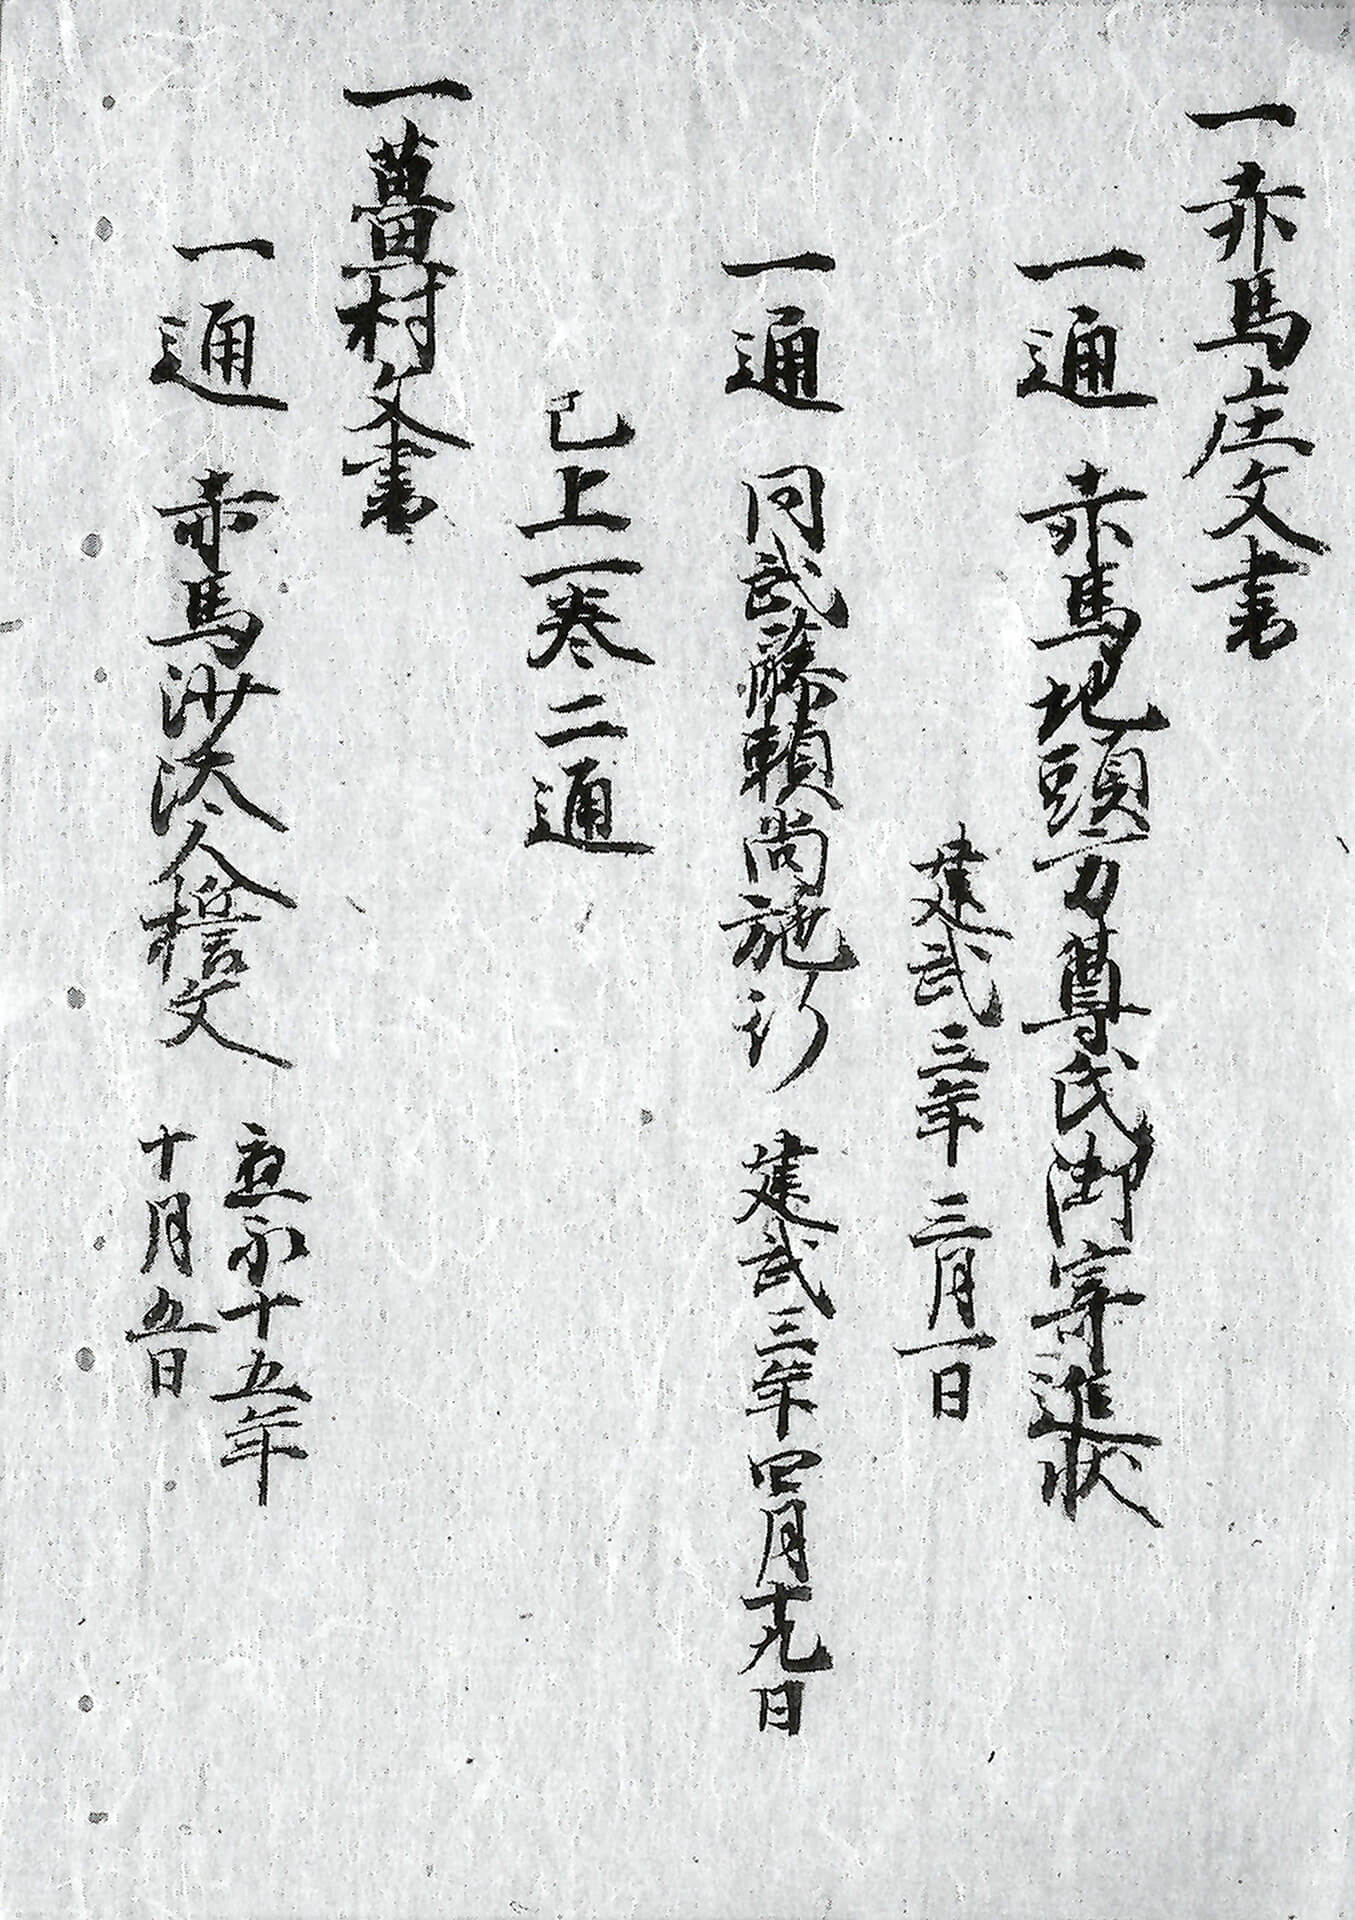 一赤馬庄文書
一通 赤馬地頭方尊氏御寄進状
建武三年三月一日
一通 同武藤頼尚施行 建武三年四月十九日
已上一巻二通
一薑村文書
一通 赤馬沙汰人誓文 応永十五年
十月五日